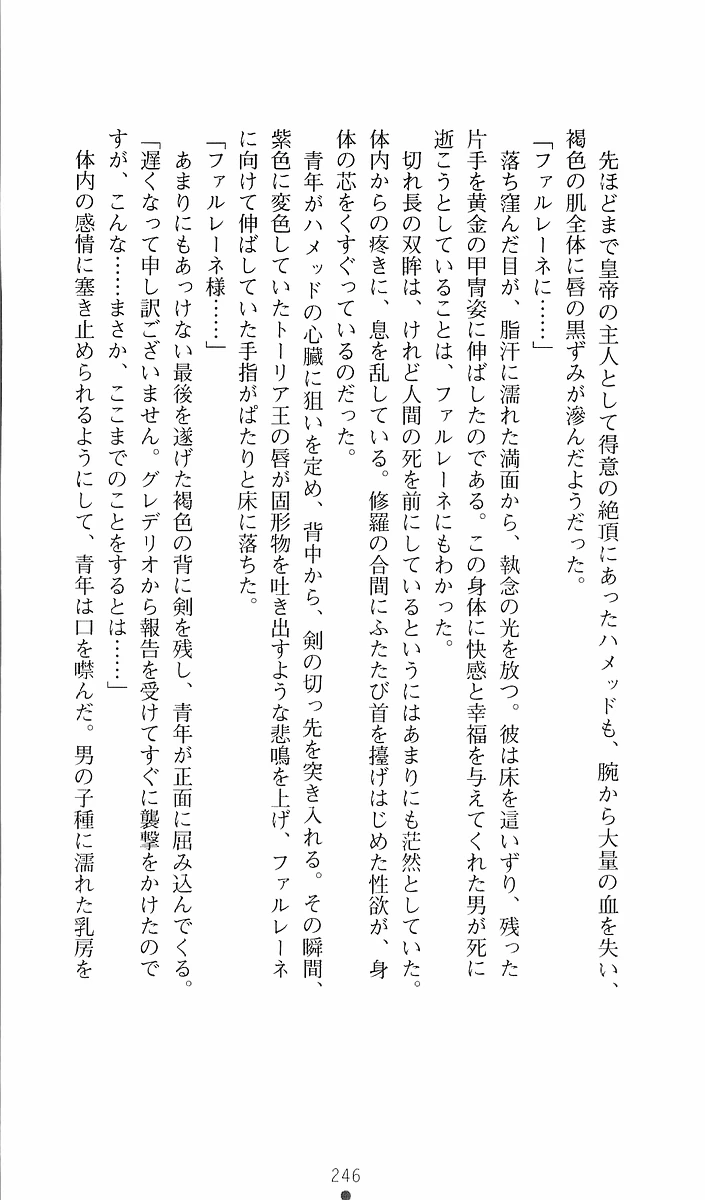 先ほどまで皇帝の主人として得意の絶頂にあったハメッドも、腕から大量の血を失い、
褐色の肌全体に唇の黒ずみが滲んだようだった。
「ファルレーネに……」
落ち窪んだ目が、脂汗に濡れた満面から、執念の光を放つ。彼は床を這いずり、残った
片手を黄金の甲冑姿に伸ばしたのである。この身体に快感と幸福を与えてくれた男が死に
逝こうとしていることは、ファルレーネにもわかった。
切れ長の双眸は、けれど人間の死を前にしているというにはあまりにも茫然としていた。
体内からの疼きに、息を乱している。修羅の合間にふたたび首を擡げはじめた性欲が、身
体の芯をくすぐっているのだった。
青年がハメッドの心臓に狙いを定め、背中から、剣の切っ先を突き入れる。その瞬間、
紫色に変色していたトーリア王の唇が固形物を吐き出すような悲鳴を上げ、ファルレーネ
に向けて伸ばしていた手指がぱたりと床に落ちた。
「ファルレーネ様……」
あまりにもあっけない最後を遂げた褐色の背に剣を残し、青年が正面に屈み込んでくる。
「遅くなって申し訳ございません。グレデリオから報告を受けてすぐに襲撃をかけたので
すが、こんな……まさか、ここまでのことをするとは……」
体内の感情に塞き止められるようにして、青年は口を噤んだ。男の子種に濡れた乳房を
246